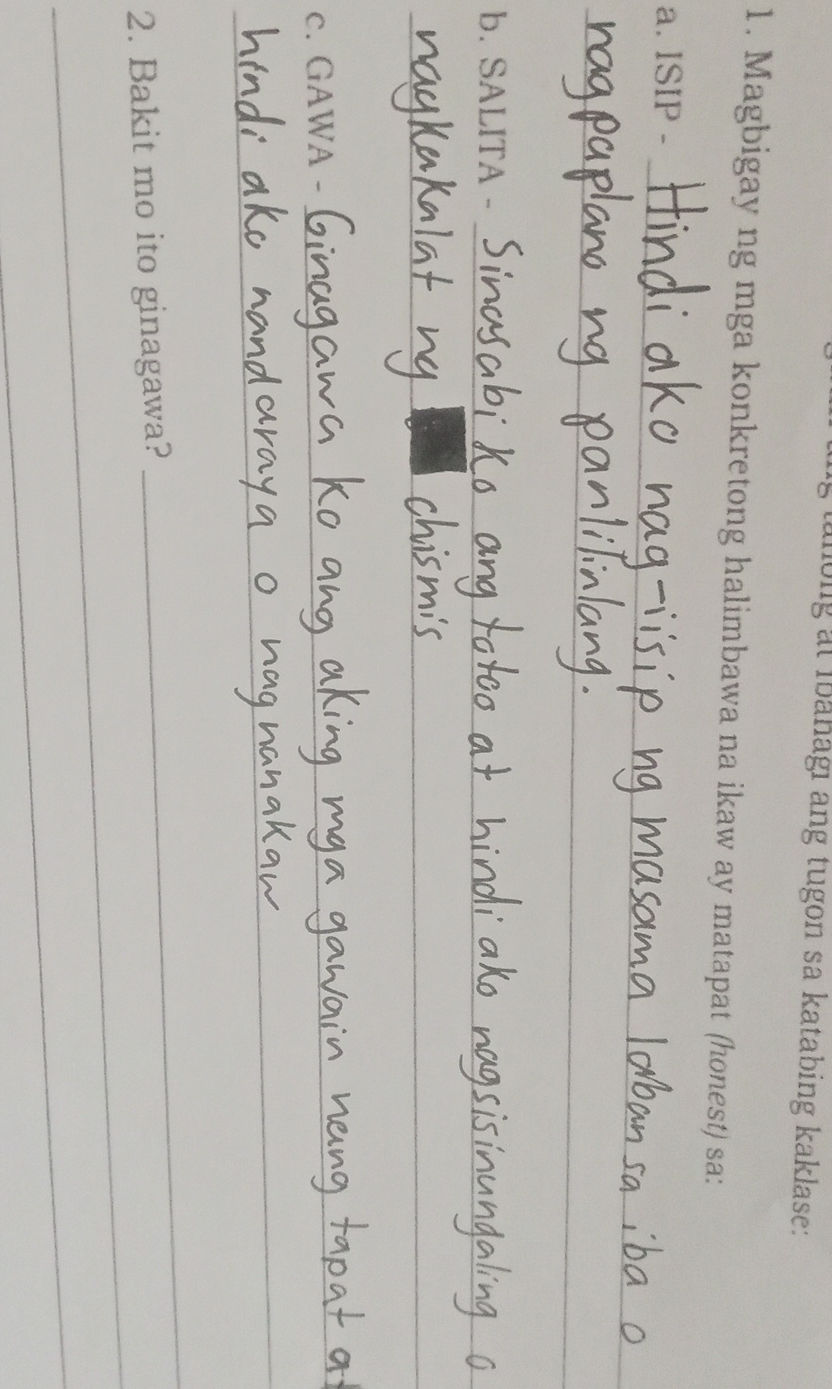 tanong at ibahagi ang tugon sa katabing kaklase:
1. Magbigay ng mga konkretong halimbawa na ikaw ay matapat (honest) sa:
a. ISIP - Hindi ako nag-iisip ng masama laban sa iba o
nagpaplano ng panlilinlang.
b. SALITA - Sinasabi ko ang totoo at hindi ako nagsisinungaling o
nagkakalat ng chismis
c. GAWA - Ginagawa ko ang aking mga gawain nang tapat at
hindi ako nandaraya o nagnanakaw
2. Bakit mo ito ginagawa?